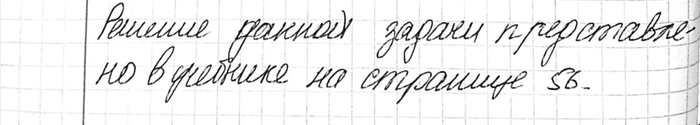 Решение данной задачи представле-
но в учебнике на странице 56.